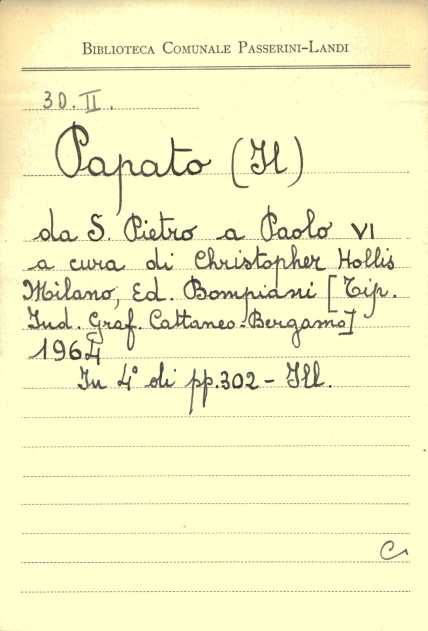 BIBLIOTECA COMUNALE PASSERINI-LANDI
30. II.
Papato (Il)
da S. Pietro a Paolo VI
a cura di Christopher Hollis
Milano, Ed. Bompiani [Tip.
Ind. Graf. Cattaneo-Bergamo]
1964
In 4° di pp. 302 - Ill.
C